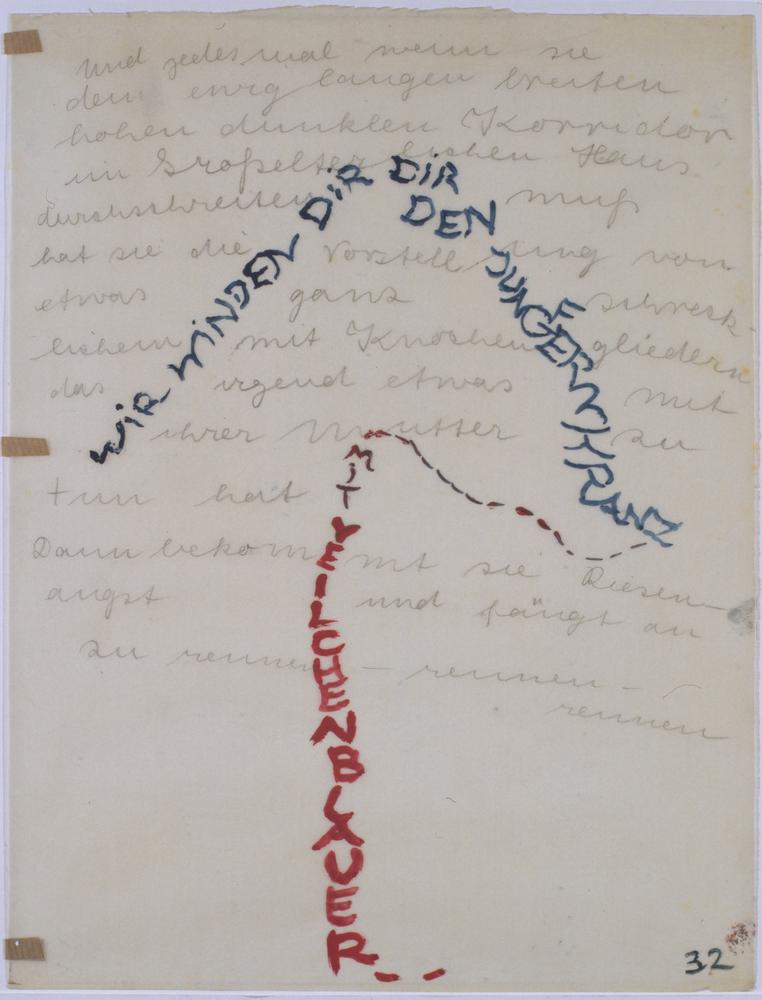 Und jedesmal wenn sie
den ewig langen breiten
hohen dunklen Korridor
im Großelterlichen Haus
durchschreiten muß
hat sie die Vorstellung von
etwas ganz schreck-
lichem mit Knochengliedern
das irgend etwas mit
ihrer Mutter zu
tun hat
Dann bekommt sie Riesen-
angst und fängt an
zu rennen — rennen —
rennen
WIR WINDEN DIR DIR
DEN JUNGFERNKRANZ
MIT VEILCHENBLAUER_ _
32